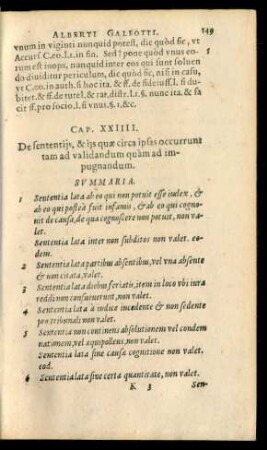 ALBERTI GALEOTTI. 149
vnum in viginti nunquid potest, dic quòd sic, vt
Accurs. C. eo. l. 1. in fin. Sed pone quòd vnus eo- 5
rum est inops, nunquid inter eos qui sunt soluen
do diuiditur periculum, dic quòd sic, nisi in casu,
vt C. eo. in auth. si hoc ita. & ff. de fideiuss. l. si du-
bitet. & ff. de tutel. & rat. distr. l. 1. §. nunc ita. & fa-
cit ff. pro socio. l. si vnus. §. 1. &c.
CAP. XXIIII.
De sententijs, & ijs quæ circa ipsas occurrunt
tam ad validandum quàm ad im-
pugnandum.
SVMMARIA.
1 Sententia lata ab eo qui non potuit esse iudex, &
ab eo qui posteà fuit infamis, & ab eo qui cogno-
uit de causa, de qua cognoscere non potuit, non va-
let.
Sententia lata inter non subditos non valet. eo-
dem.
2 Sententia lata partibus absentibus, vel vna absente
& non citata, valet.
3 Sententia lata diebus feriatis, item in loco vbi iura
reddi non consueuerunt, non valet.
4 Sententia lata à iudice incedente & non sedente
pro tribunali non valet.
5 Sententia non continens absolutionem vel condem
nationem, vel equipollens, non valet.
Sententia lata sine causa cognitione non valet.
eod.
6 Sententia lata sine certa quantitate, non valet.
K 3 Sen-